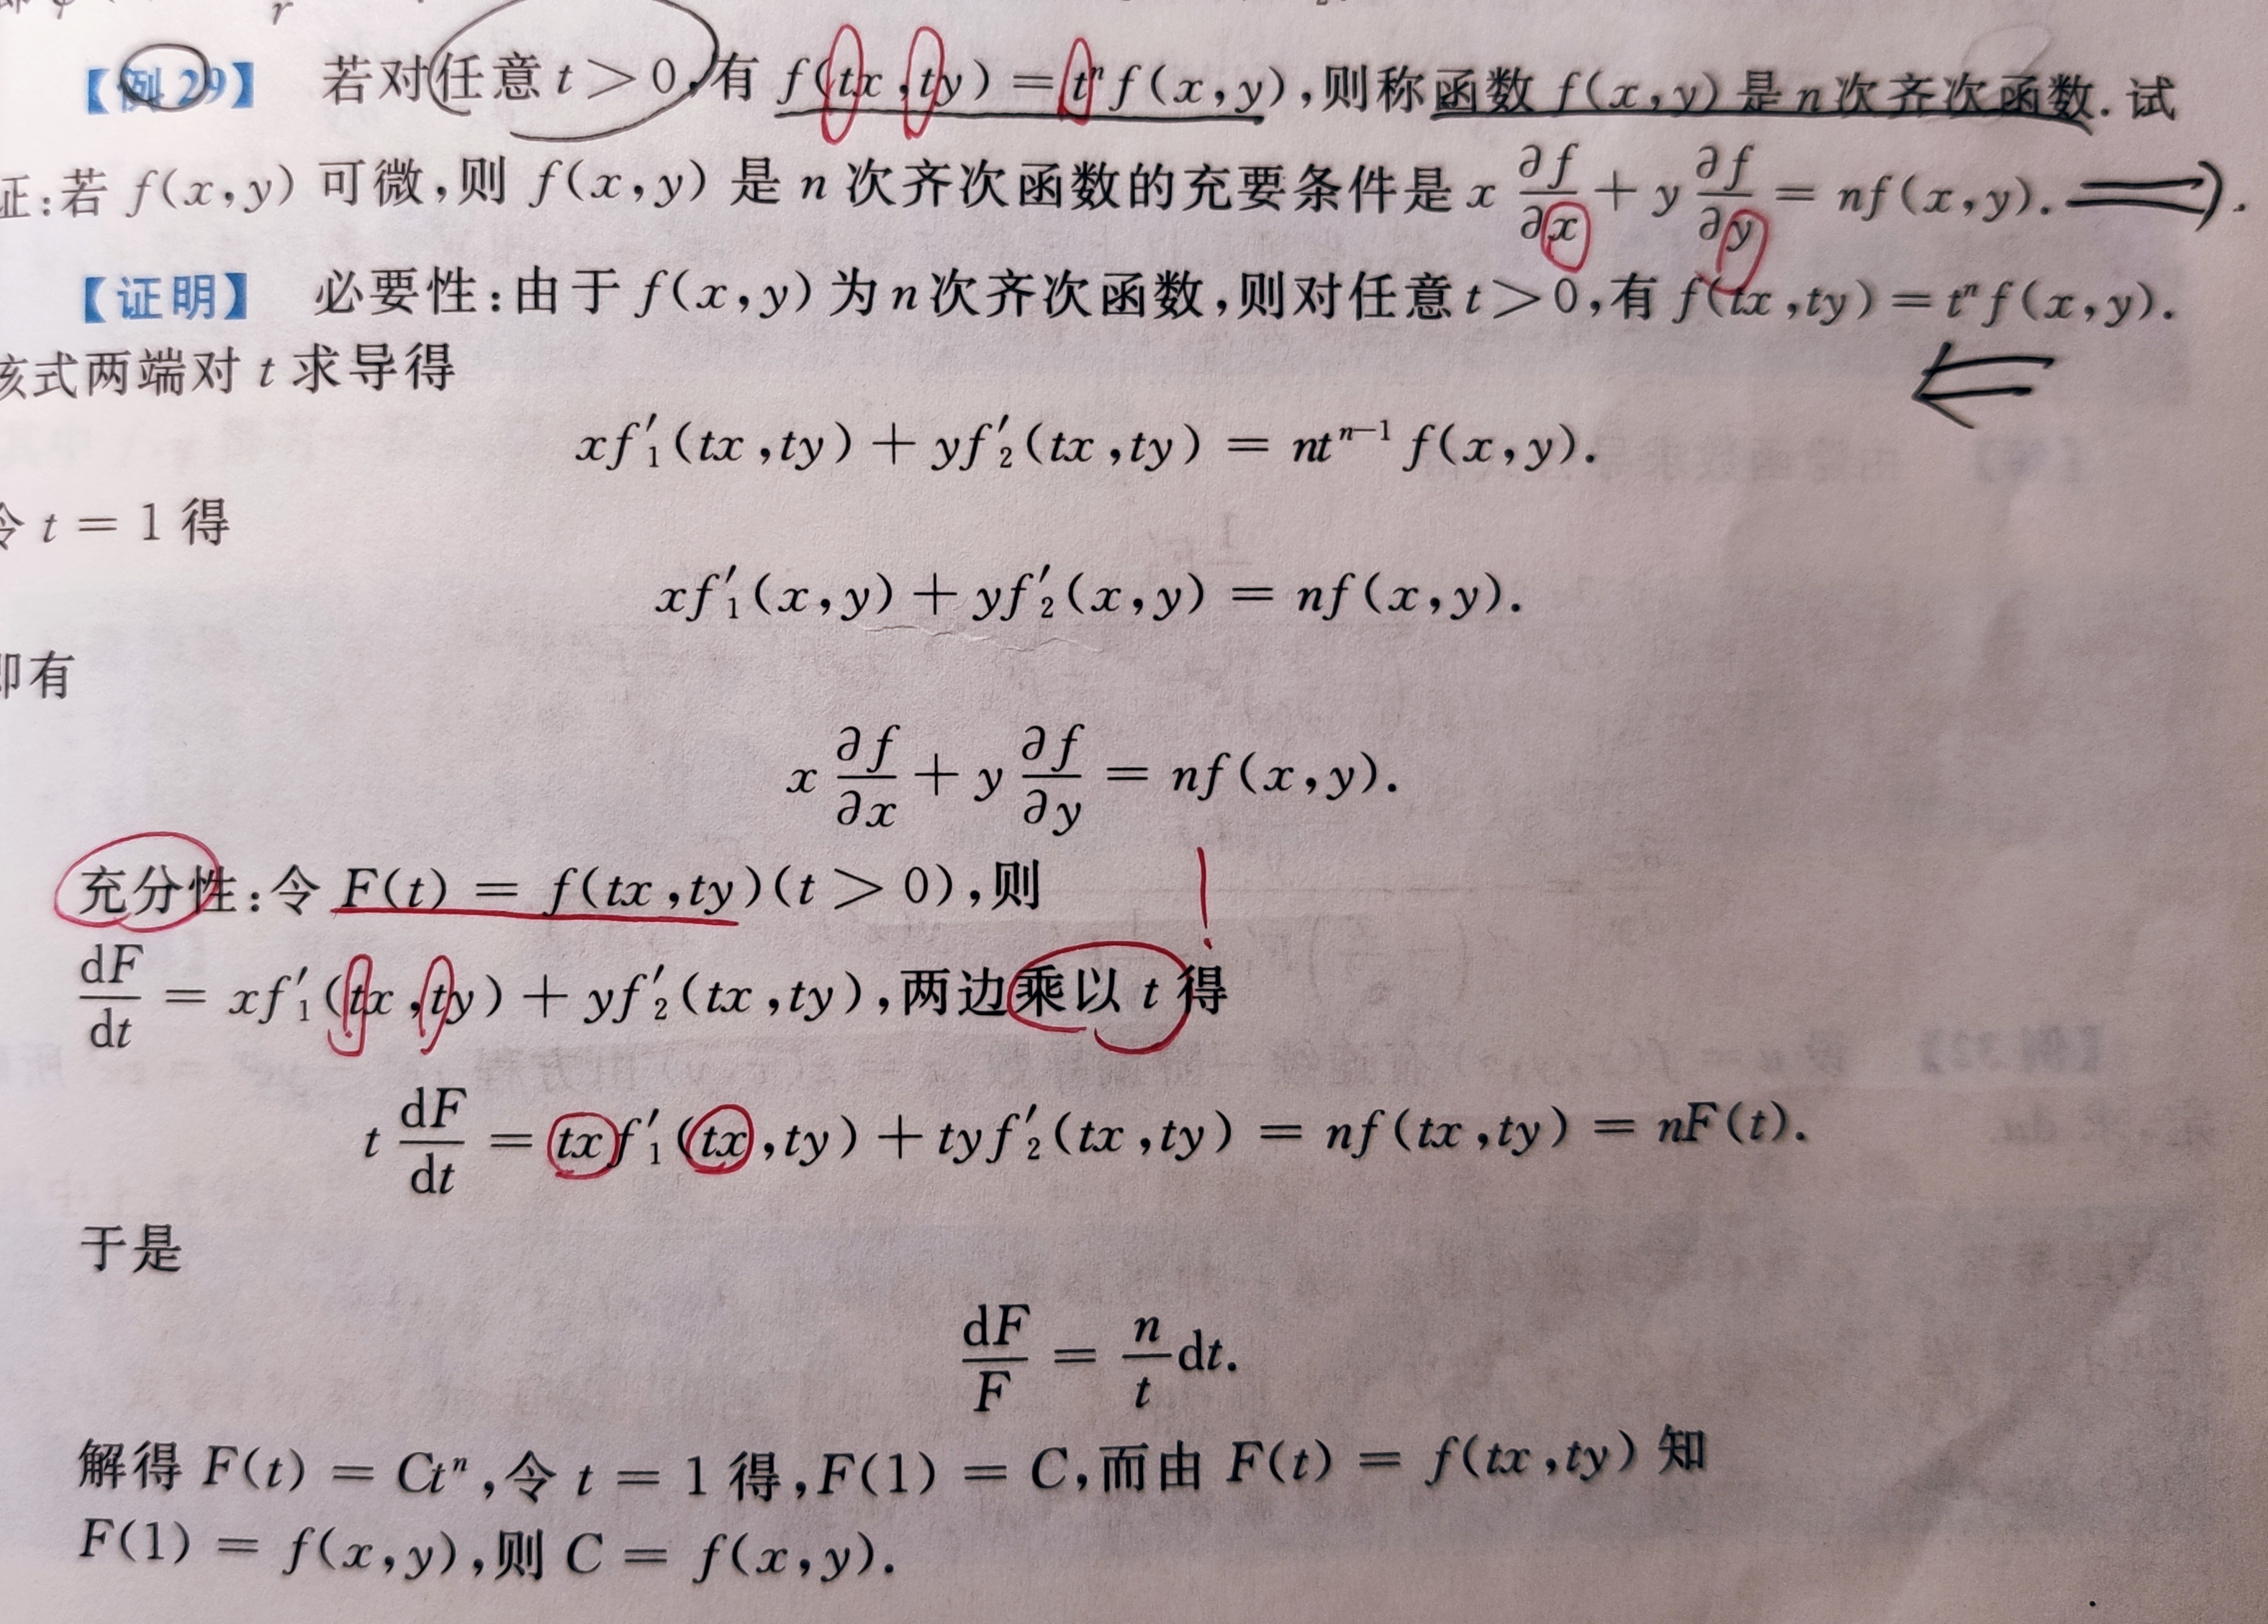 【例 29】 若对任意 t > 0,有 f(tx,ty) = tⁿ f(x,y),则称函数 f(x,y) 是 n 次齐次函数. 试
证:若 f(x,y) 可微,则 f(x,y) 是 n 次齐次函数的充要条件是 x ∂f/∂x + y ∂f/∂y = nf(x,y).
【证明】 必要性:由于 f(x,y) 为 n 次齐次函数,则对任意 t > 0,有 f(tx,ty) = tⁿ f(x,y).
该式两端对 t 求导得
xf′₁(tx,ty) + yf′₂(tx,ty) = ntⁿ⁻¹ f(x,y).
令 t = 1 得
xf′₁(x,y) + yf′₂(x,y) = nf(x,y).
即有
x ∂f/∂x + y ∂f/∂y = nf(x,y).
充分性:令 F(t) = f(tx,ty)(t > 0),则
dF/dt = xf′₁(tx,ty) + yf′₂(tx,ty),两边乘以 t 得
t dF/dt = txf′₁(tx,ty) + tyf′₂(tx,ty) = nf(tx,ty) = nF(t).
于是
dF/F = n/t dt.
解得 F(t) = Ctⁿ,令 t = 1 得,F(1) = C,而由 F(t) = f(tx,ty) 知
F(1) = f(x,y),则 C = f(x,y).